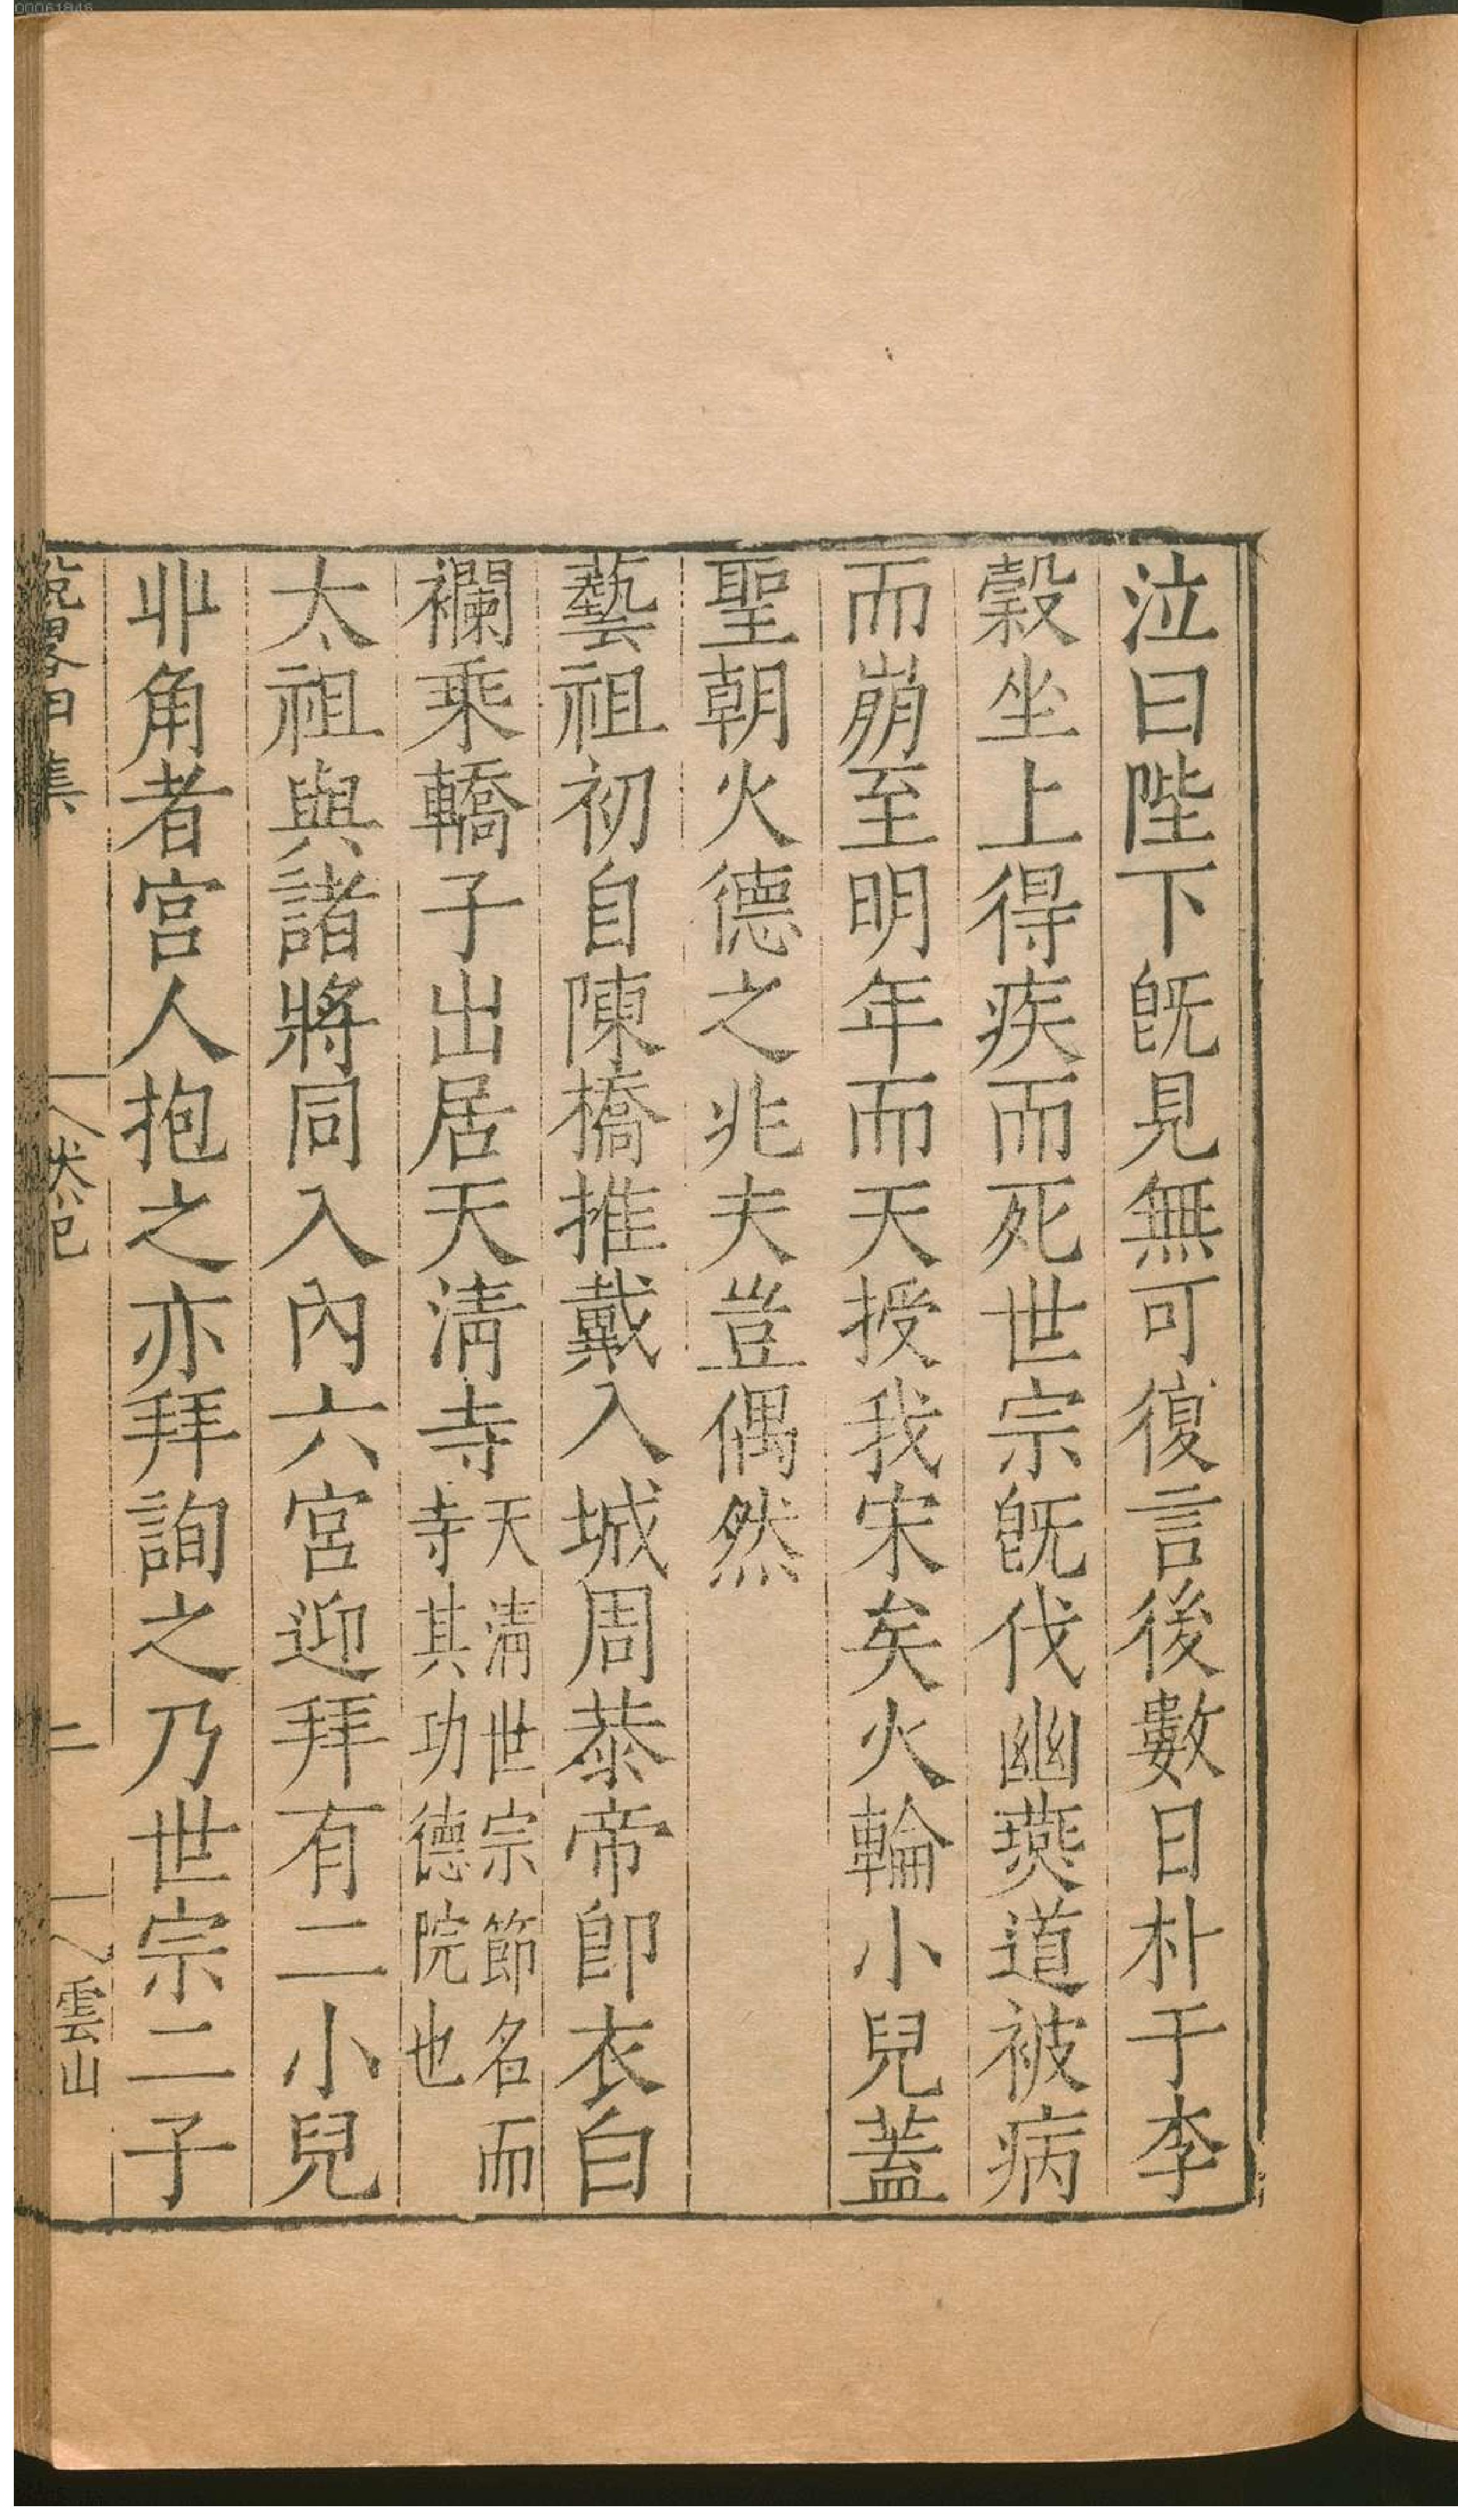 泣曰陛下旣見無可復言後數日朴于李
穀坐上得疾而死世宗旣伐幽燕道被病
而崩至明年而天授我宋矣火輪小兒蓋
聖朝火德之兆夫豈偶然
藝祖初自陳橋推戴入城周恭帝卽衣白
襴乘轎子出居天清寺天清世宗節名而寺其功德院也
太祖與諸將同入內六宮迎拜有二小兒
丱角者宮人抱之亦拜詢之乃世宗二子
二
雲山
00061846